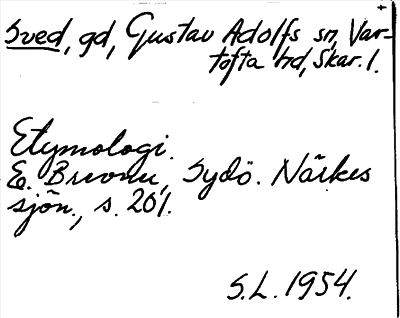 Sved, gd, Gustav Adolfs sn, Var-
tofta hd, Skar. l.
Etymologi.
E. Brevner, Sydö. Närkes
sjön., s. 201.
S.L. 1954.